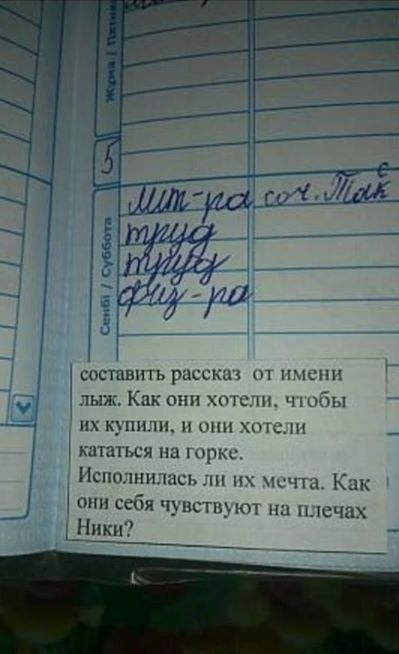 Жұма / Пятница
5
Сенбі / Суббота
лит-ра соч. Так
с
труд
труд
физ-ра
составить рассказ от имени
лыж. Как они хотели, чтобы
их купили, и они хотели
кататься на горке.
Исполнилась ли их мечта. Как
они себя чувствуют на плечах
Ники?